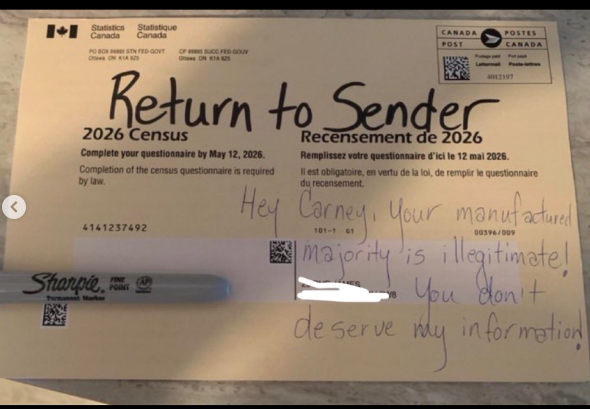 Statistics Canada
Statistique Canada
PO BOX 99985 STN FED-GOVT
Ottawa ON K1A 9Z5
CP 99985 SUCC FED-GOUV
Ottawa ON K1A 9Z5
CANADA POST
POSTES CANADA
Postage paid
Lettermail
Port payé
Poste-lettres
4012197
Return to Sender
2026 Census
Complete your questionnaire by May 12, 2026.
Completion of the census questionnaire is required
by law.
Recensement de 2026
Remplissez votre questionnaire d'ici le 12 mai 2026.
Il est obligatoire, en vertu de la loi, de remplir le questionnaire
du recensement.
4141237492
101-1 61
00396/009
Hey Carney, Your manufactured
majority is illegitimate!
You don't
deserve my information!
Sharpie. FINE POINT AP
Permanent Marker